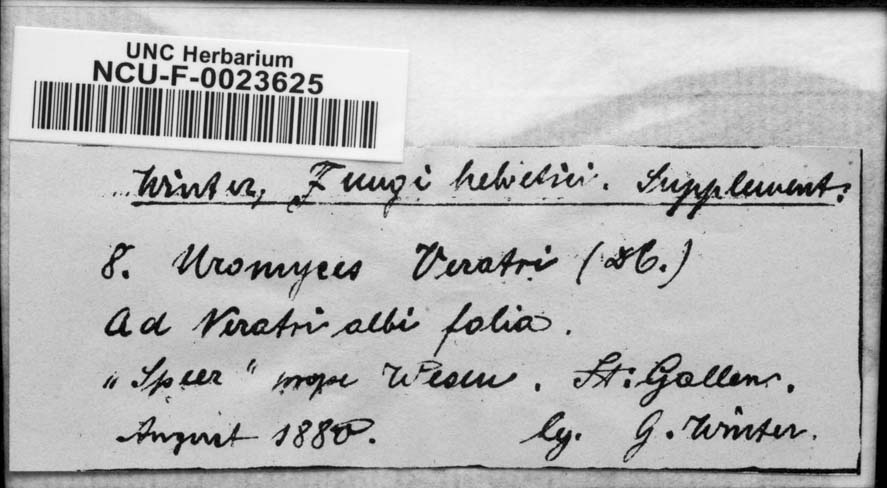 UNC Herbarium
NCU-F-0023625
Winter, Fungi helvetici. Supplement:
8. Uromyces Veratri (DC.)
Ad Veratri albi folia.
„Speer“ prope Wesen. St: Gallen.
August 1880.   lg. G. Winter.